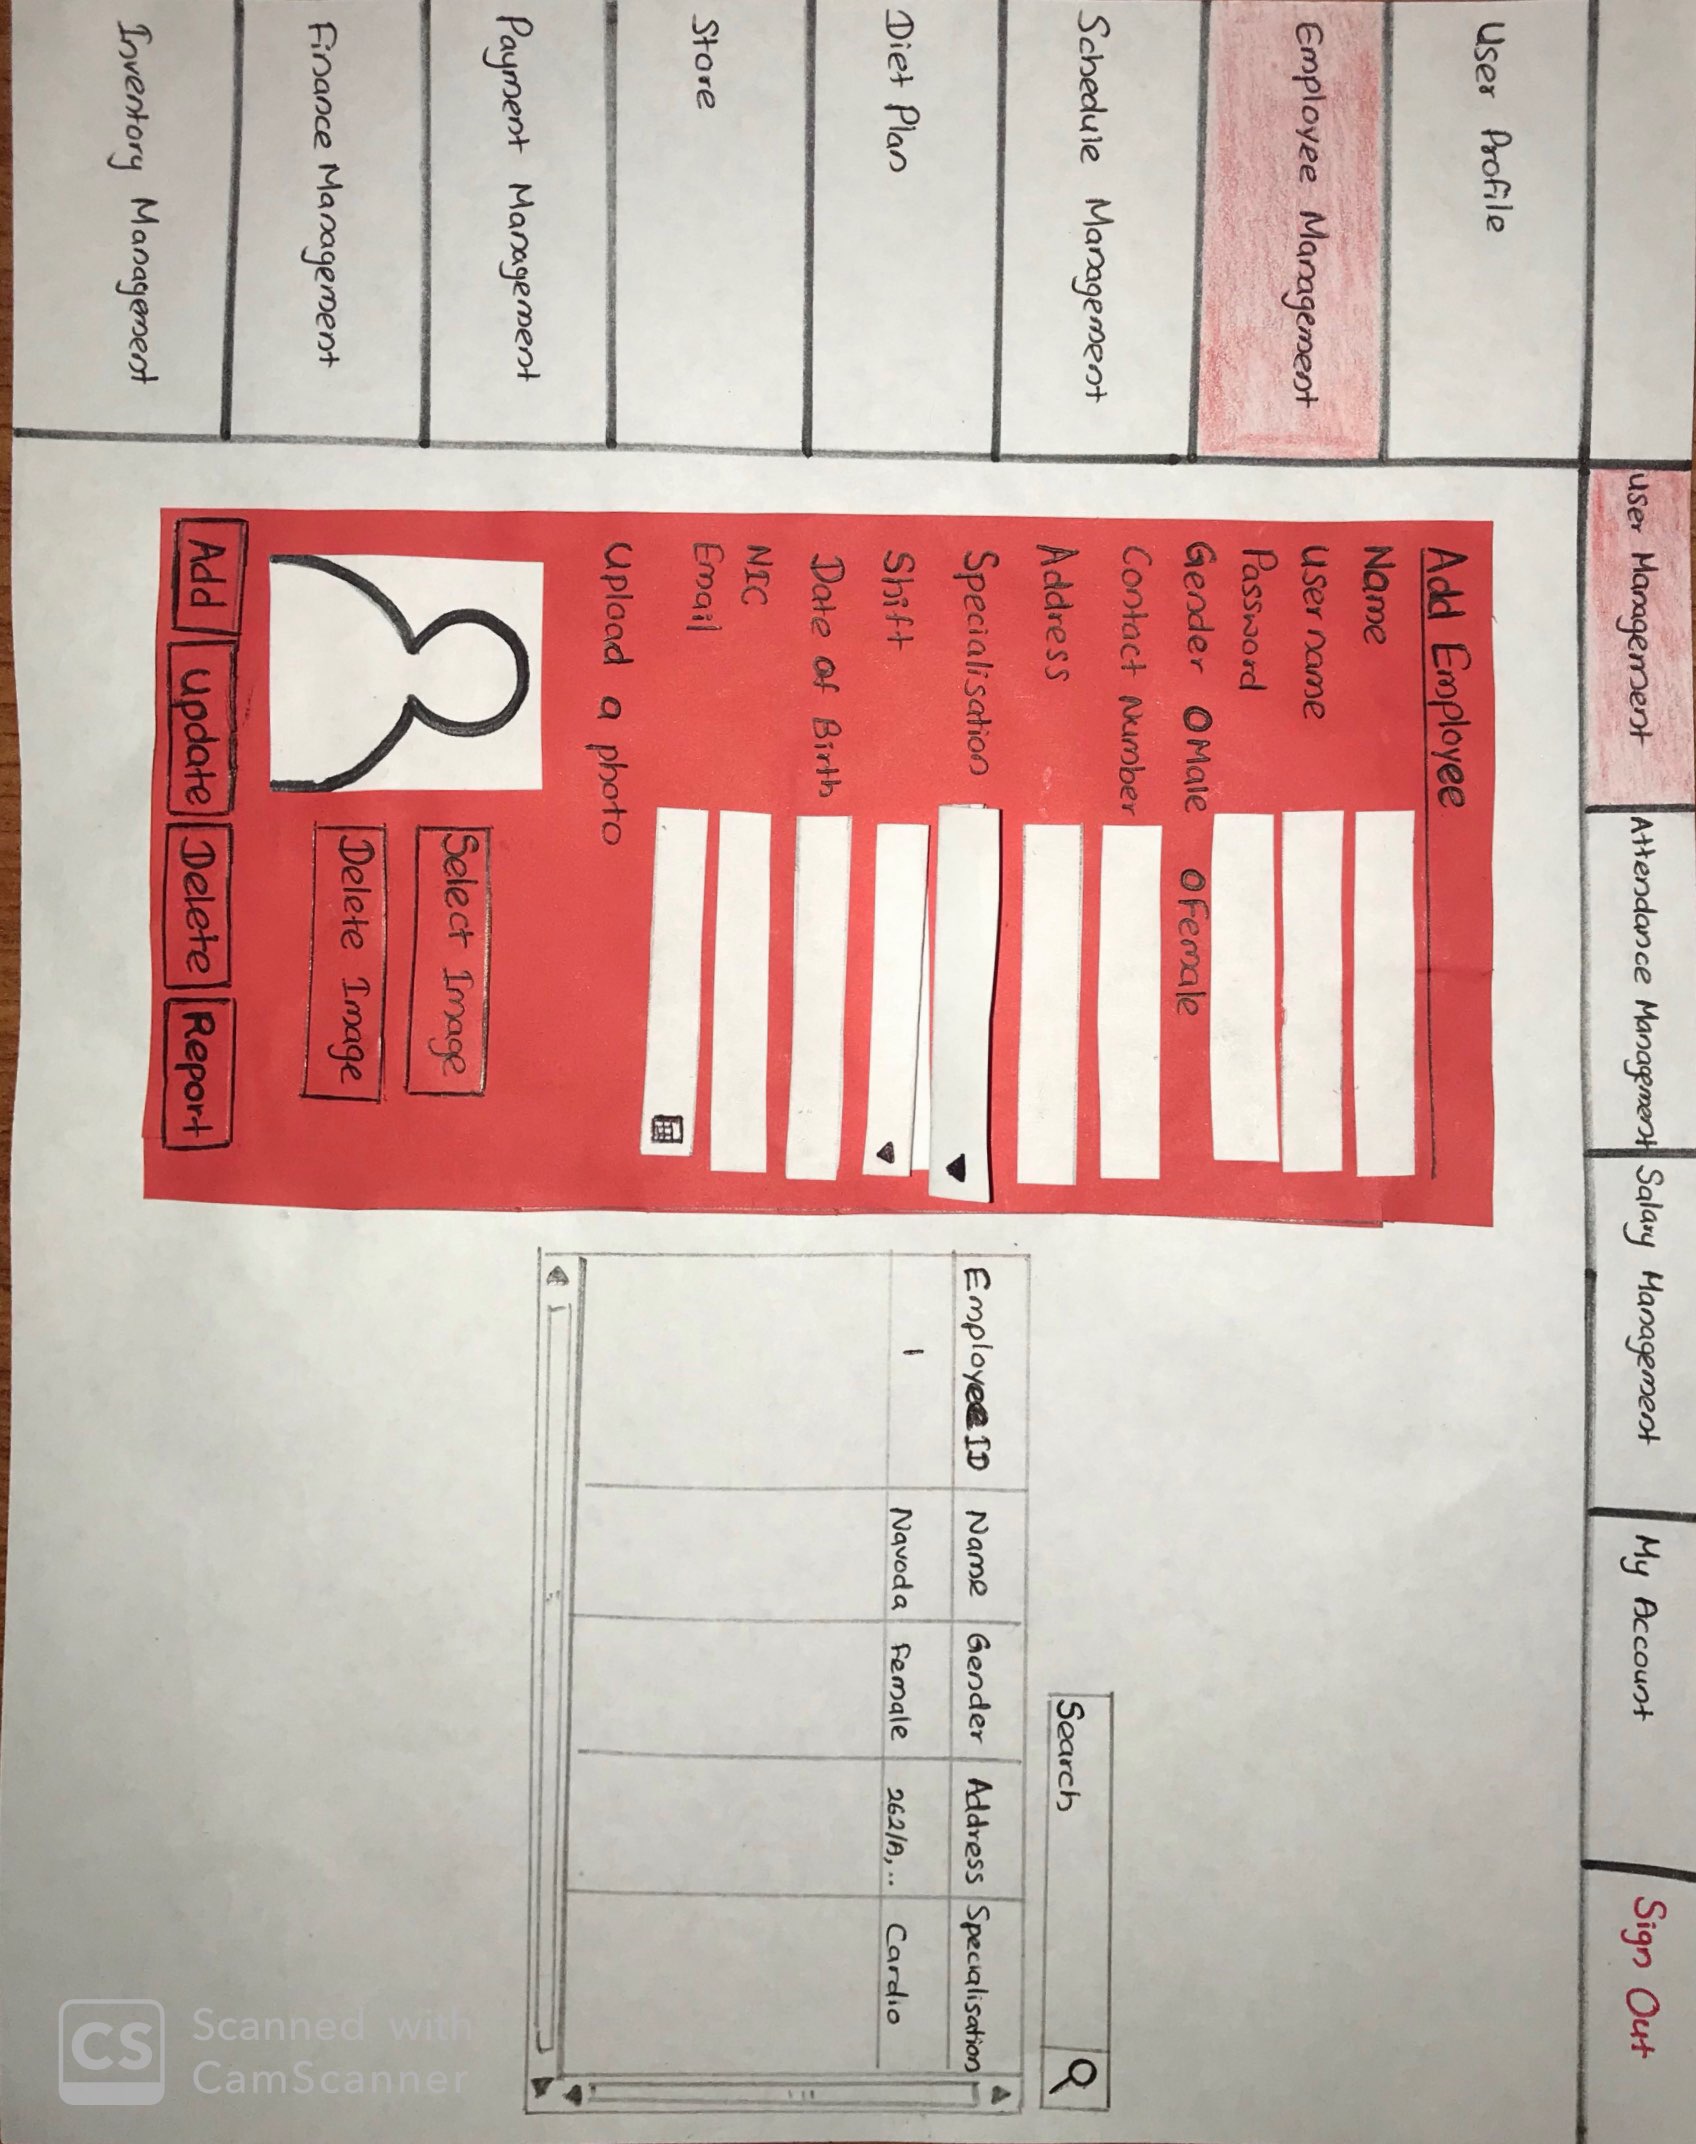 User Management
Attendance Management
Salary Management
My Account
Sign Out
User Profile
Employee Management
Schedule Management
Diet Plan
Store
Payment Management
Finance Management
Inventory Management
Add Employee
Name
User name
Password
Gender O Male O Female
Contact Number
Address
Specialisation
Shift
Date of Birth
NIC
Email
Upload a photo
Select Image
Delete Image
Add Update Delete Report
Search
Employee ID Name Gender Address Specialisation
1 Navoda Female 262/A,.. Cardio
CS
Scanned with
CamScanner